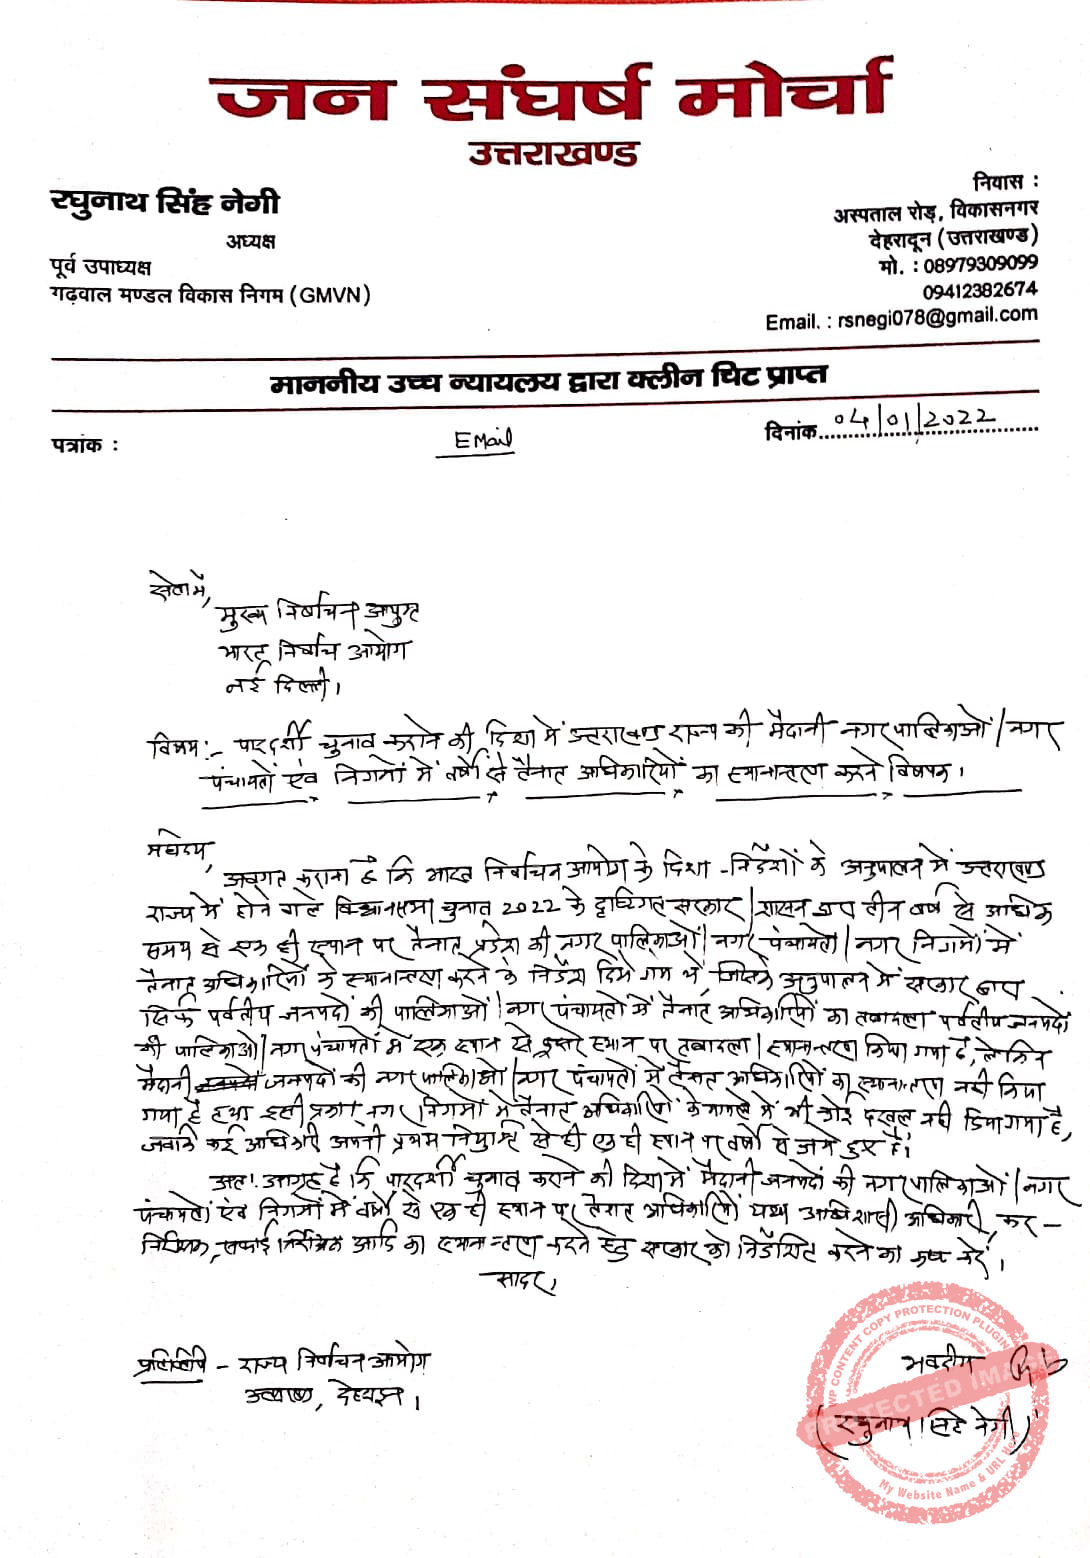 जन संघर्ष मोर्चा
उत्तराखण्ड
रघुनाथ सिंह नेगी
अध्यक्ष
पूर्व उपाध्यक्ष
गढ़वाल मण्डल विकास निगम (GMVN)
निवास :
अस्पताल रोड़, विकासनगर
देहरादून (उत्तराखण्ड)
मो. : 08979309099
09412382674
Email. : rsnegi078@gmail.com
माननीय उच्च न्यायलय द्वारा क्लीन चिट प्राप्त
पत्रांक :
EMail
दिनांक 04/01/2022
सेवा में,
मुख्य निर्वाचन आयुक्त
भारत निर्वाचन आयोग
नई दिल्ली।
विषय:- पारदर्शी चुनाव कराने की दिशा में उत्तराखण्ड राज्य की मैदानी नगर पालिकाओं/नगर
पंचायतों एवं निगमों में वर्षों से तैनात अधिकारियों का स्थानान्तरण करने विषयक।
महोदय,
अवगत कराना है कि भारत निर्वाचन आयोग के दिशा-निर्देशों के अनुपालन में उत्तराखण्ड
राज्य में होने वाले विधानसभा चुनाव 2022 के दृष्टिगत सरकार/शासन द्वारा तीन वर्ष से अधिक
समय से एक ही स्थान पर तैनात प्रदेश की नगर पालिकाओं/नगर पंचायतों/नगर निगमों में
तैनात अधिकारियों के स्थानान्तरण करने के निर्देश दिये गये थे, जिसके अनुपालन में सरकार द्वारा
सिर्फ पर्वतीय जनपदों की पालिकाओं/नगर पंचायतों में तैनात अधिकारियों का तबादला पर्वतीय जनपदों
की पालिकाओं/नगर पंचायतों में एक स्थान से दूसरे स्थान पर तबादला/स्थानान्तरण किया गया है, लेकिन
मैदानी जनपदों की नगर पालिकाओं/नगर पंचायतों में तैनात अधिकारियों का स्थानान्तरण नहीं किया
गया है तथा इसी प्रकार नगर निगमों में तैनात अधिकारियों के मामले में भी कोई दखल नहीं दिया गया है,
जबकि कई अधिकारी अपनी प्रथम नियुक्ति से ही एक ही स्थान पर वर्षों से जमे हुए हैं।
अतः आग्रह है कि पारदर्शी चुनाव कराने की दिशा में मैदानी जनपदों की नगर पालिकाओं/नगर
पंचायतों एवं निगमों में वर्षों से एक ही स्थान पर तैनात अधिकारियों यथा अधिशासी अधिकारी, कर-
निरीक्षक, सफाई निरीक्षक आदि का स्थानान्तरण करने हेतु सरकार को निर्देशित करने का कष्ट करें।
सादर।
प्रतिलिपि - राज्य निर्वाचन आयोग
उत्तराखण्ड, देहरादून।
भवदीय
(रघुनाथ सिंह नेगी)
WP CONTENT COPY PROTECTION PLUGIN
PROTECTED IMAGE
My Website Name & URL Here